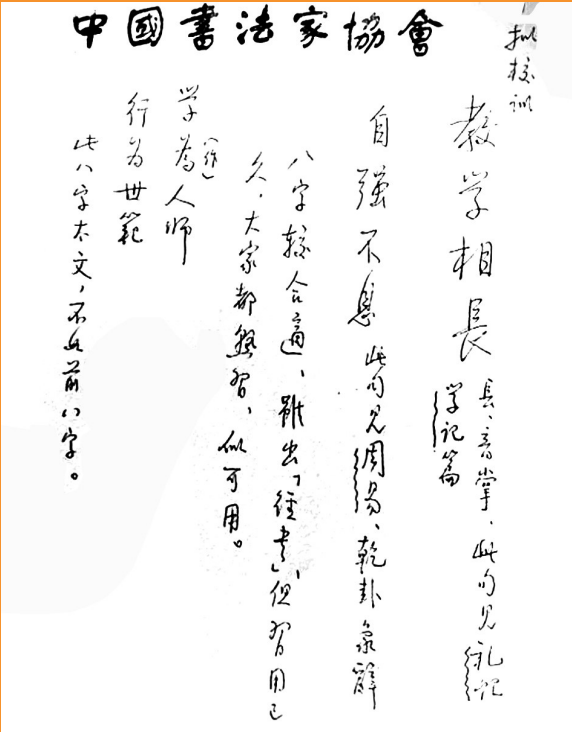 中國書法家協會
拟校训
教学相長 長、音掌、此句见礼记
学记篇
自强不息 此句见周易、乾卦象辞
八字較合適、雖出「经书」,但習用已
久,大家都熟習,似可用。
学為人师
行为世範
此八字太文,不如前八字。